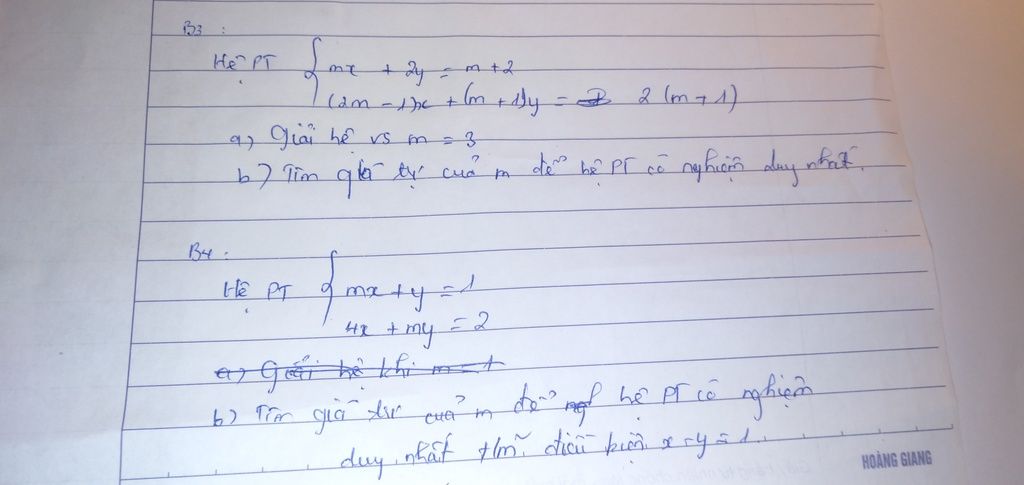 B3 :
Hệ PT { mx + 2y = m + 2
(2m - 1)x + (m + 1)y = 2 (m + 1)
a) Giải hệ vs m = 3
b) Tìm giá trị của m để hệ PT có nghiệm duy nhất.
B4 :
Hệ PT { mx + y = 1
4x + my = 2
a) Giải hệ khi m = 1
b) Tìm giá trị của m để hệ PT có nghiệm
duy nhất t/m điều kiện x - y = 1.
HOÀNG GIANG